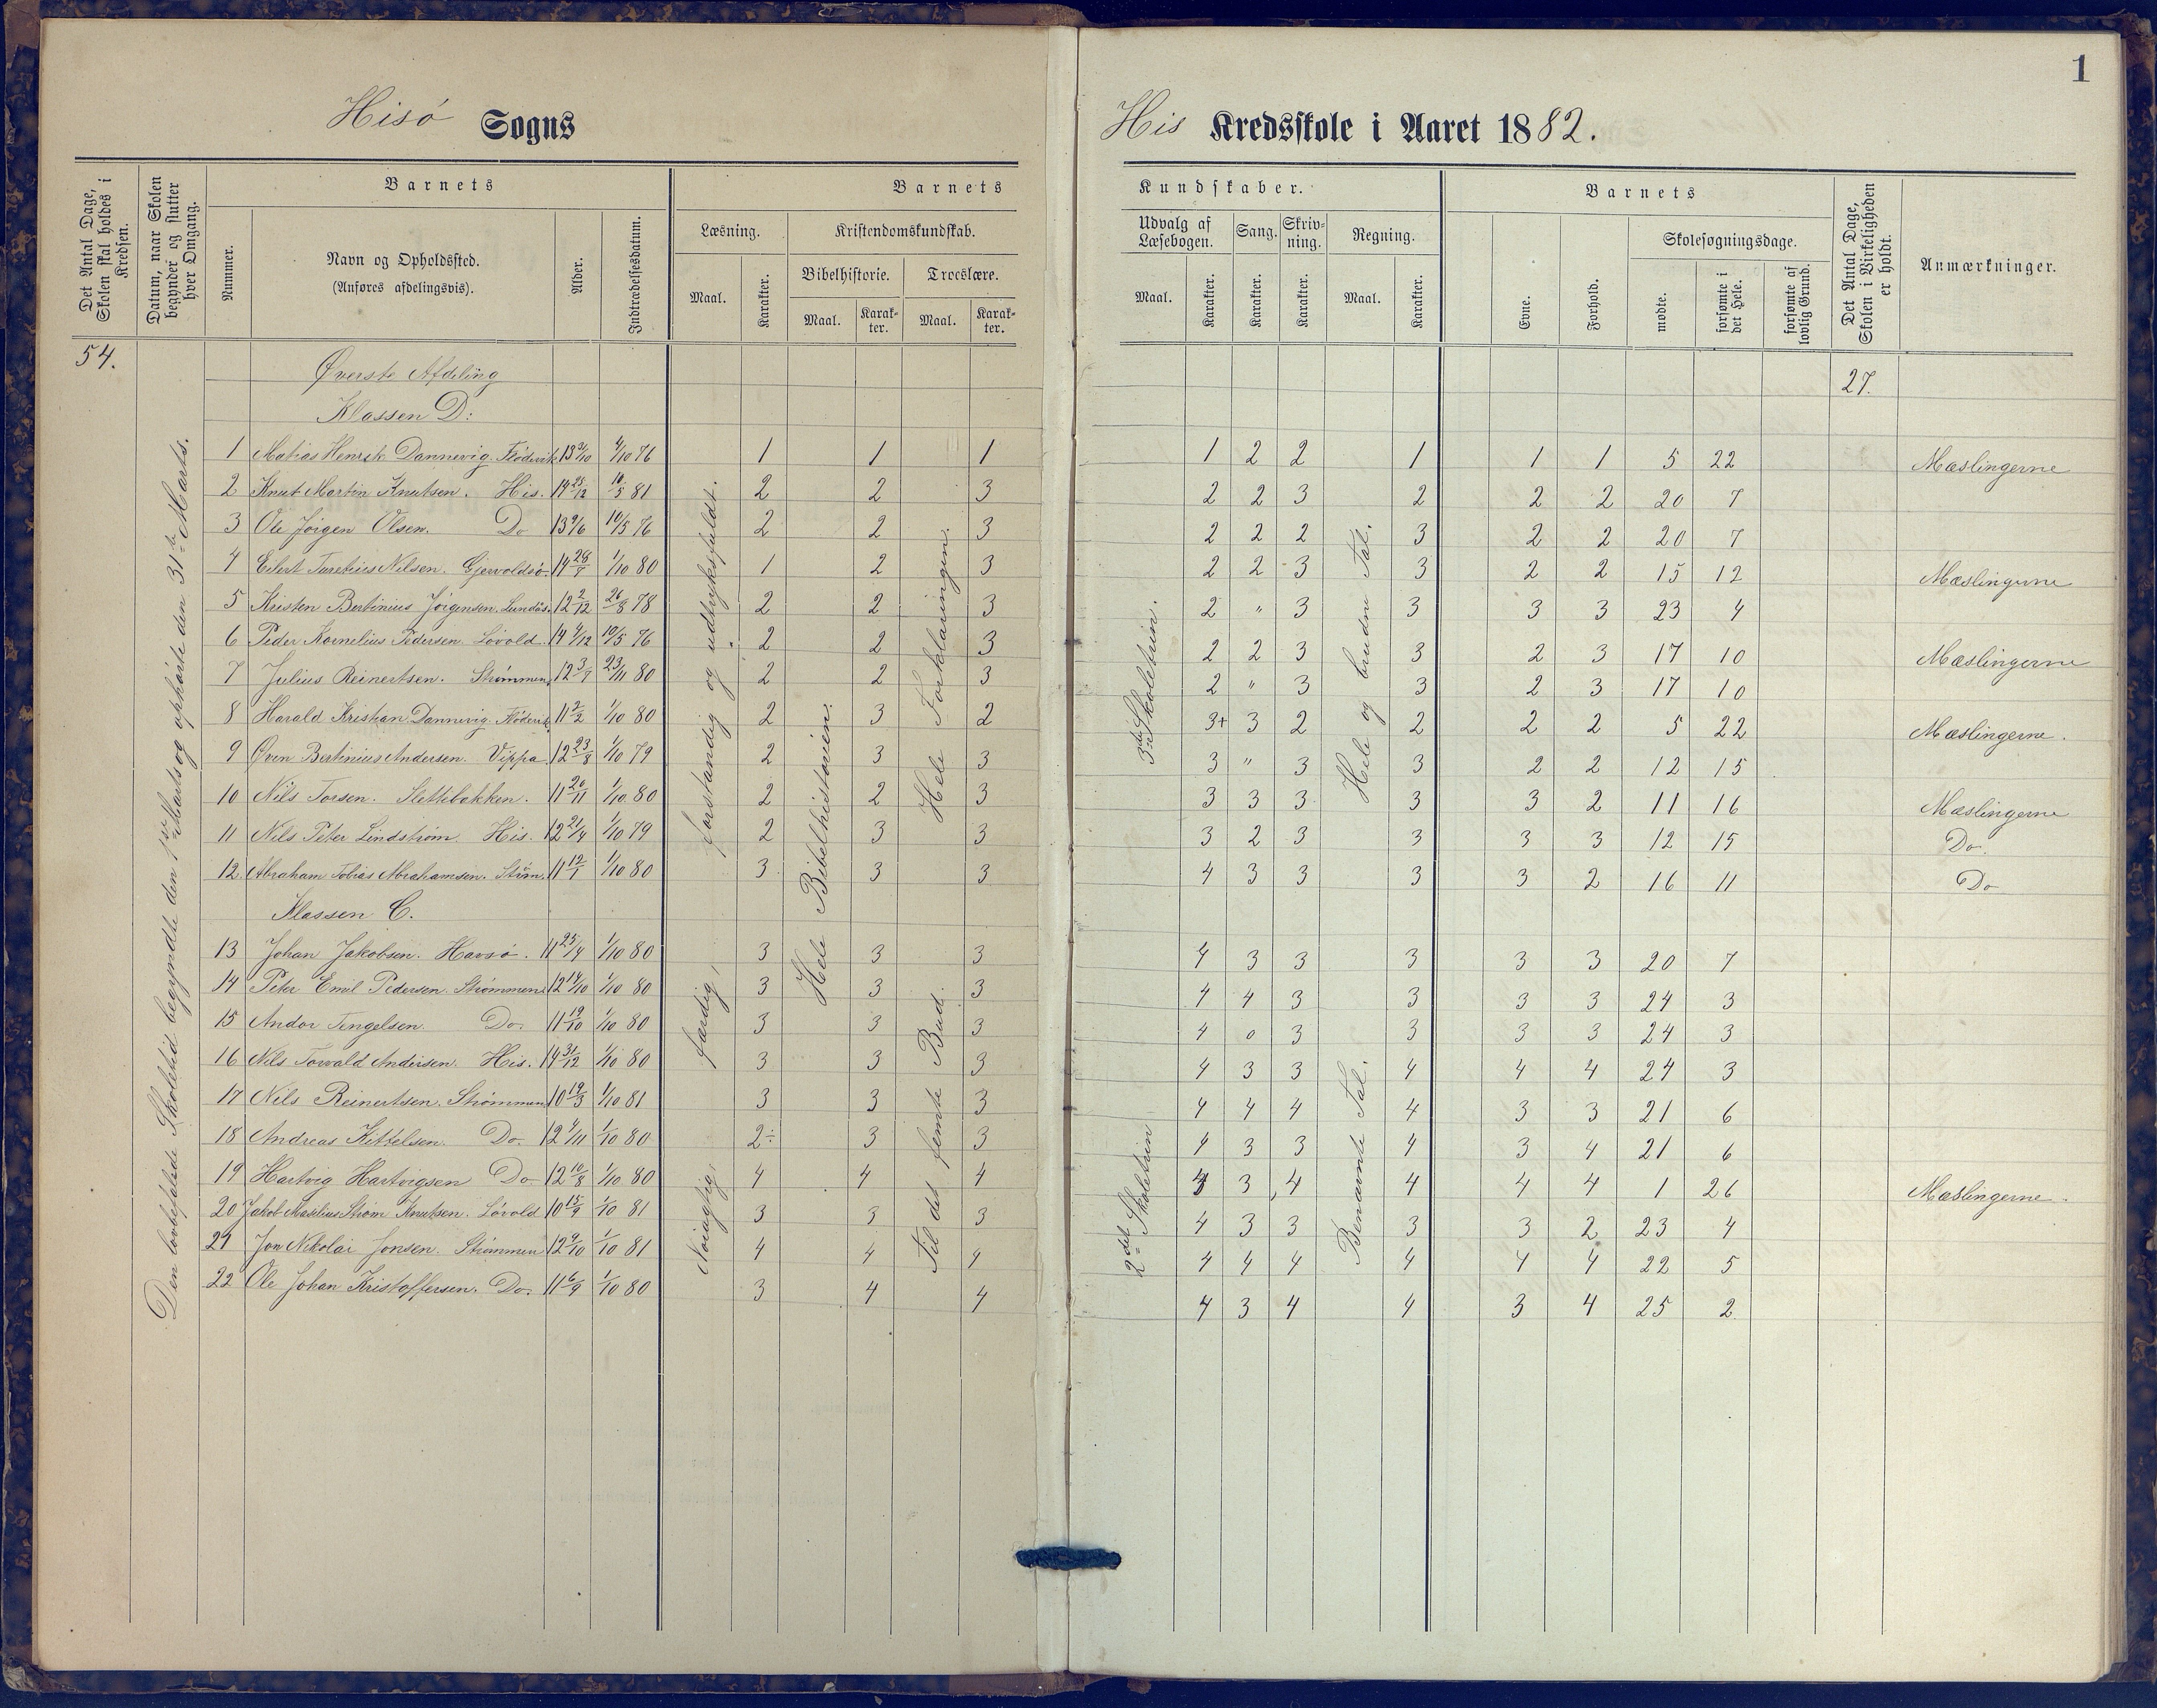 1
Hisö Sogns
His Kredsskole i Aaret 1882.
Det Antal Dage, Skolen skal holdes i Kredsen.
Datum, naar Skolen begynder og slutter hver Omgang.
Barnets
Nummer.
Navn og Opholdssted.
(Anføres afdelingsvis).
Alder.
Indtrædelsesdatum.
Barnets
Læsning.
Maal.
Karakter.
Kristendomskundskab.
Bibelhistorie.
Maal.
Karak-ter.
Troeslære.
Maal.
Karak-ter.
Kundskaber.
Udvalg af Læsebogen.
Maal.
Karakter.
Sang.
Karakter.
Skriv-ning.
Karakter.
Regning.
Maal.
Karakter.
Barnets
Evne.
Forhold.
Skolesøgningsdage.
mødte.
forsømte i det Hele.
forsømte af lovlig Grund.
Det Antal Dage, Skolen i Virkeligheden er holdt.
Anmærkninger.
54.
Den lovbefalede Skoletid begyndte den 1ste Marts og ophørte den 31te Marts.
Øverste Afdeling
27.
Klassen D:
Nöiagtig, færdig, forstandig og udtryksfuldt.
Hele Bibelhistorien.
Hele Forklaringen.
Til det femte Bud.
3die Skoletrin.
2det Skoletrin
Hele og brudne Tal.
Benævnte Tal.
1 Matias Henrik Dannevig. Flödevik 13 3/10 4/10 76 1 1 1 1 2 2 1 1 1 5 22 Mæslingerne
2 Knut Martin Knutsen. His. 14 25/12 10/5 81 2 2 3 2 2 3 2 2 2 20 7
3 Ole Jörgen Olsen. Do 13 9/6 10/5 76 2 2 3 2 2 2 3 2 2 20 7
4 Eilert Turetius Nilsen. Gjervoldsö. 14 28/7 1/10 80 1 2 3 2 2 3 3 2 2 15 12 Mæslingerne
5 Kristen Bertinius Jörgensen. Lundös. 12 2/12 26/8 78 2 2 3 2 " 3 3 3 3 23 4
6 Peder Kornelius Pedersen Lövold. 14 4/12 10/5 76 2 2 3 2 2 3 3 2 3 17 10 Mæslingerne
7 Julius Reinertsen. Strømmen 12 3/7 23/11 80 2 2 3 2 " 3 3 2 3 17 10
8 Harald Kristian Dannevig. Flödevik 11 2/2 1/10 80 2 3 2 3+ 3 2 2 2 2 5 22 Mæslingerne.
9 Oven Bertinius Andersen. Vippa 12 23/8 1/10 79 2 3 3 3 " 3 3 2 2 12 15
10 Nils Torsen. Slettebakken. 11 20/11 1/10 80 2 2 3 3 3 3 3 3 2 11 16 Mæslingerne
11 Nils Peter Lindström. His. 12 21/4 1/10 79 2 3 3 3 2 3 3 3 3 12 15 Do.
12. Abraham Tobias Abrahamsen. Ström. 11 12/1 1/10 80 3 3 3 4 3 3 3 3 2 16 11 Do
Klassen C.
13 Johan Jakobsen. Havsö. 11 25/4 1/10 80 3 3 3 4 3 3 3 3 3 20 7
14 Peter Emil Pedersen. Strømmen 12 14/10 1/10 80 3 3 3 4 4 3 3 3 3 24 3
15 Andor Tengelsen. Do. 11 19/10 1/10 80 3 3 3 4 0 3 3 3 3 24 3
16 Nils Torvald Andersen. His. 14 31/12 1/10 80 3 3 3 4 3 3 4 4 4 24 3
17 Nils Reinertsen. Strømmen 10 19/3 1/10 81 3 3 3 4 4 4 4 3 3 21 6
18 Andreas Kittelsen. Do. 12 4/11 1/10 80 2÷ 3 3 4 3 3 4 3 4 21 6
19 Hartvig Hartvigsen Do 12 10/8 1/10 80 4 4 4 4 3 4 4 4 4 1 26 Mæslingerne.
20 Jakob Maselius Strøm Knutsen. Lövold 10 15/9 1/10 81 3 3 3 4 3 3 3 3 2 23 4
21 Jon Nikolai Jonsen. Strømmen 12 9/10 1/10 81 4 4 4 4 4 4 4 4 4 22 5
22 Ole Johan Kristoffersen. Do. 11 6/9 1/10 80 3 4 4 4 3 4 4 3 4 25 2